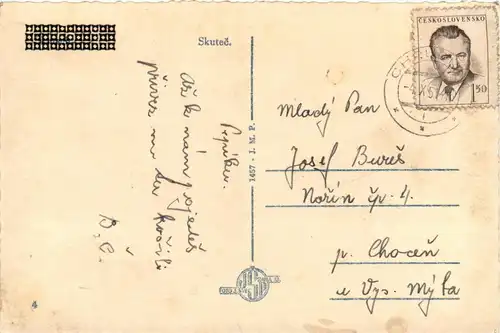 Skuteč.
ČESKOSLOVENSKO
1.50
CH
Pepíku.
Až k nám pojedeš
přivez mo tu košili
B.Č.
1457 - J. M. P.
Mladý Pan
Josef Bureš
Nořín čp. 4.
p. Choceň
u Vys. Mýta
4